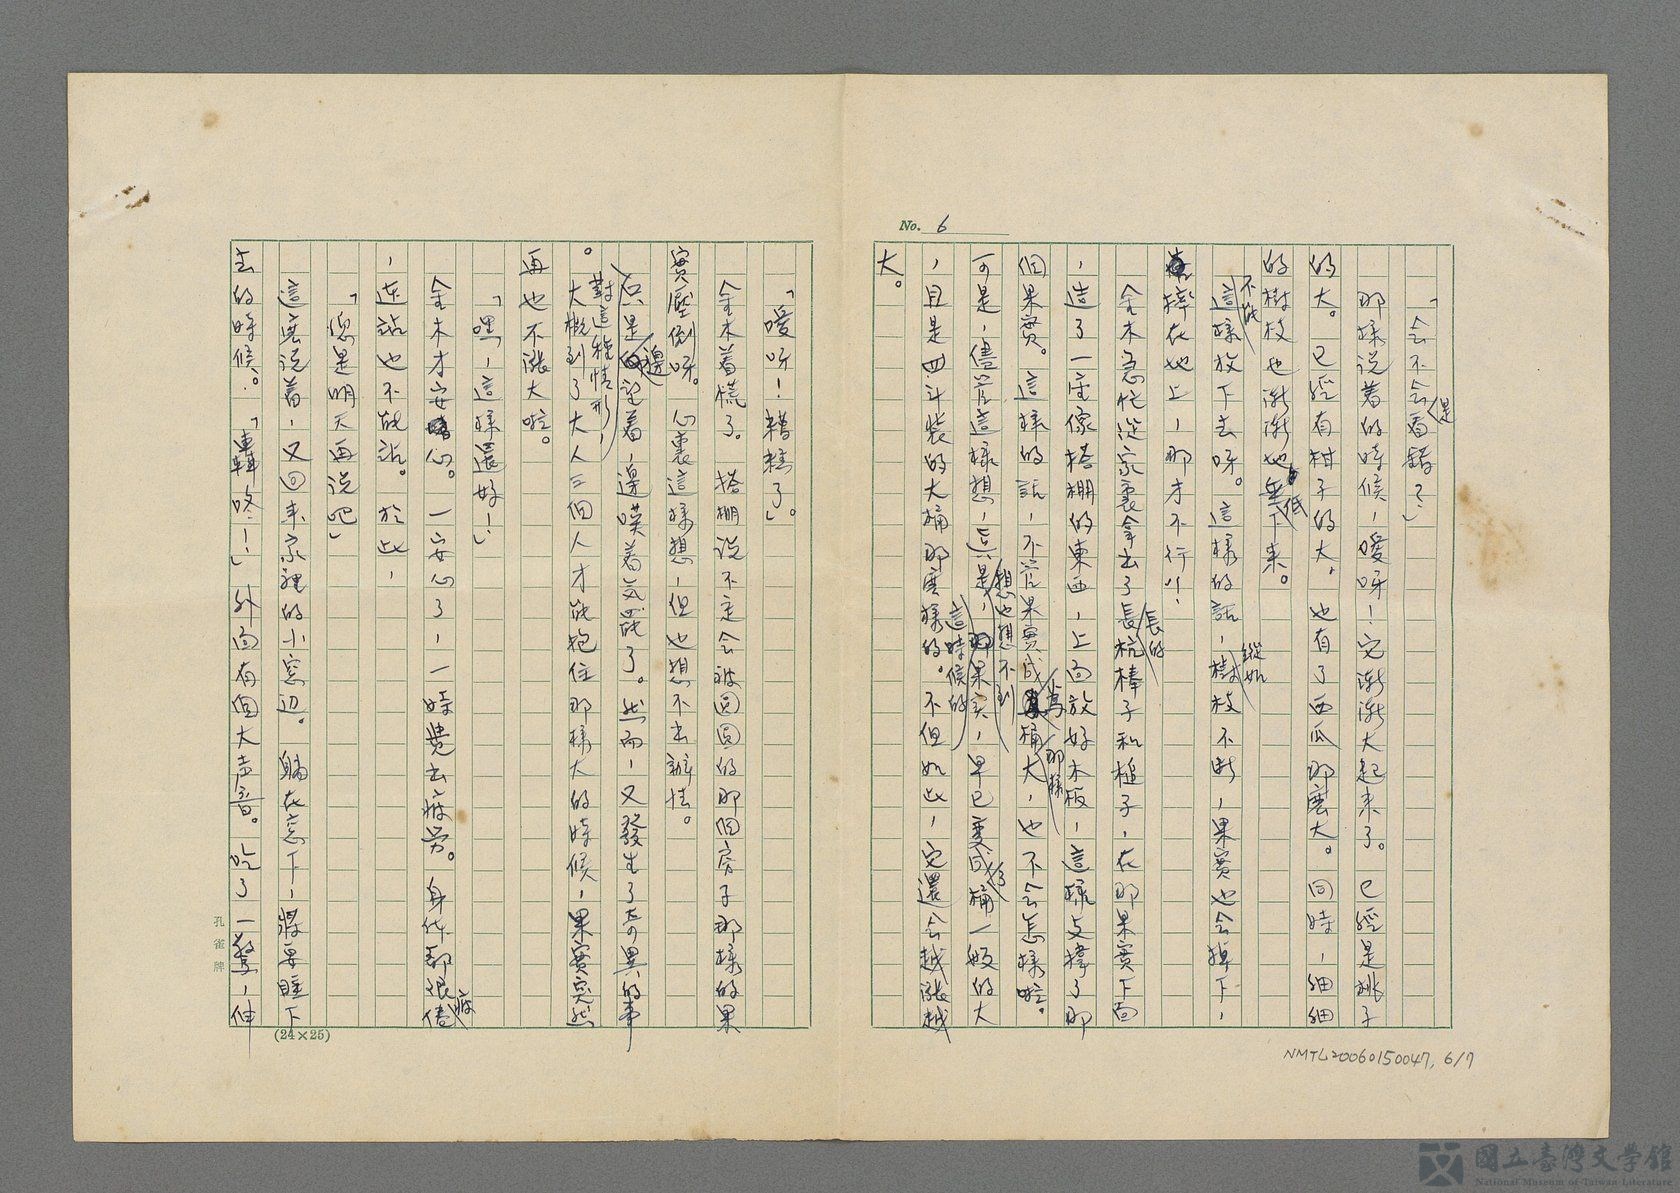 No. 6
「会不会是看錯？」
那樣说着的時候，噯呀！它漸漸大起来了。已經是桃子
的大。已經有柑子的大，也有了西瓜那麼大。同時，細細
的樹枝也漸漸地低下来。
不能這樣放下去呀。這樣的話，縱如樹枝不断，果實也会掉下，
摔在地上，那才不行！
金木急忙從家裏拿去了長長的杭棒子和槌子，在那果實下面
，造了一座像搭棚的東西，上面放好木板，這樣支撑了那
個果實。這樣的話，不管果實成為桶那樣大，也不会怎樣啦。
可是，儘管這樣想，真是，想也想不到這時候的果实，早已變成了桶一般的大
，且是四斗裝的大桶那麼樣的。不但如此，它還会越漲越
大。
「噯呀！糟糕了。」
金木着慌了。搭棚说不定会被圓圓的那個房子那樣的果
實壓倒呀。心裏這樣想，但也想不出辦法。
只是邊望着，邊嘆着気罷了。然而，又發生了奇異的事
。對這種情形，大概到了大人三個人才能抱住那樣大的時候，果實突然
再也不漲大啦。
「嘿，這樣還好！」
金木才安心。一安心了，一時覺出疲勞。身体都很疲倦
，连站也不能站。於此，
「還是明天再说吧」
這麼说着，又回来家裡的小窓边。躺在窓下，將要睡下
去的時候。「轟咚！」外面有個大声音。吃了一驚，伸
孔雀牌
(24×25)
NMTL20060150047, 6/7
國立臺灣文學館
National Museum of Taiwan Literature